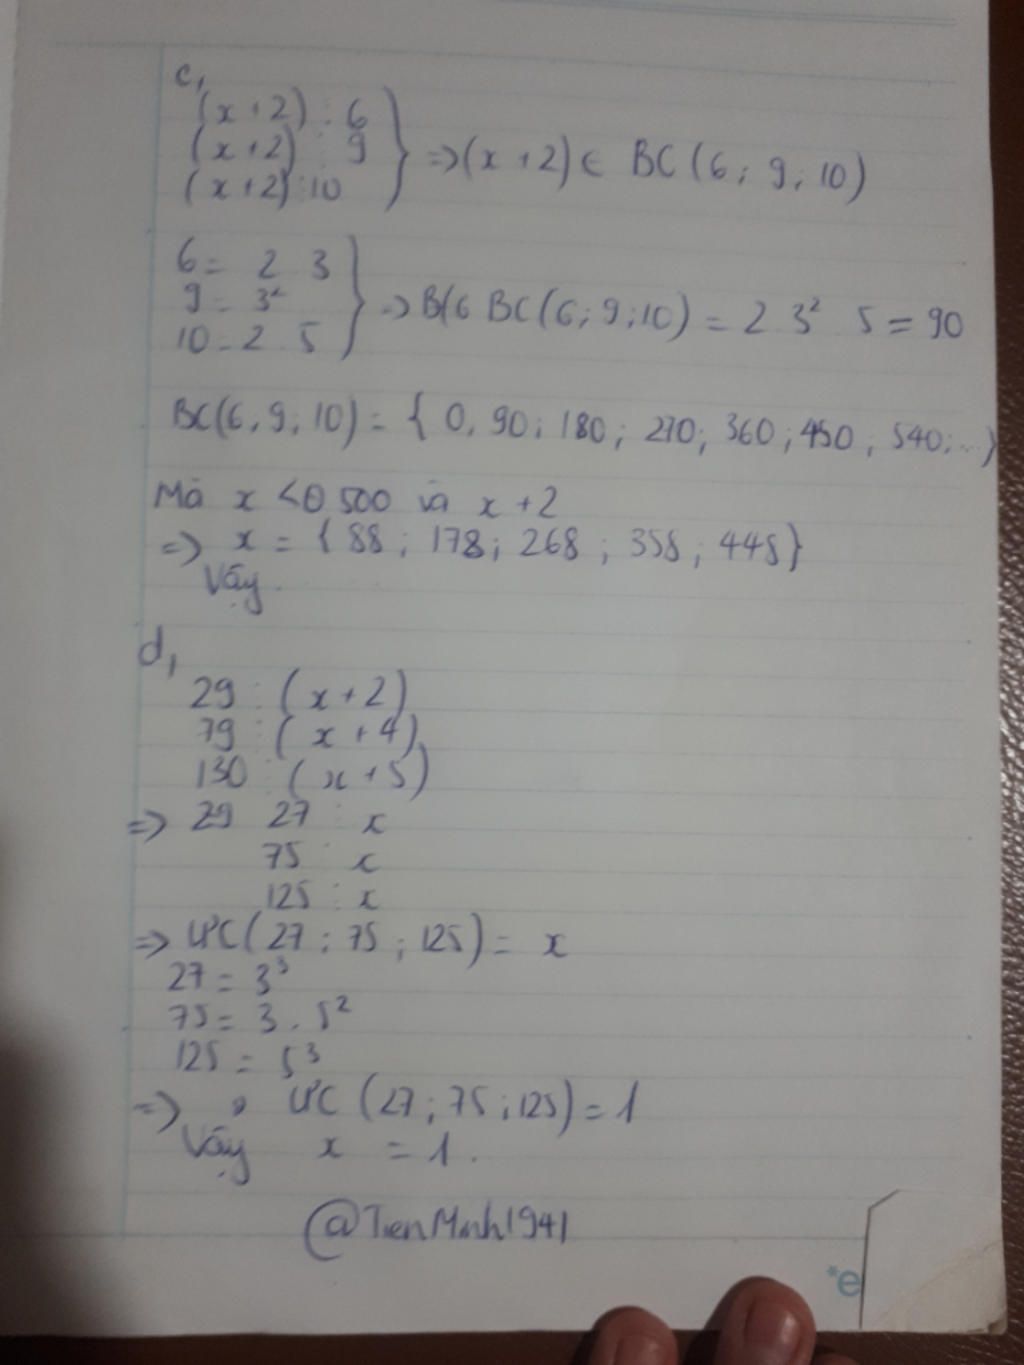 c,
(x+2) ⋮ 6
(x+2) ⋮ 9
(x+2) ⋮ 10
} => (x+2) ∈ BC(6; 9; 10)
6 = 2 3
9 = 3²
10 = 2 5
} => B(6 BC(6; 9; 10) = 2 3² 5 = 90
BC(6, 9; 10) = { 0, 90; 180; 270; 360; 450; 540; ...}
Mà x < 0 500 và x + 2
=> x = {88; 178; 268; 358; 448}
Vậy.
d,
29 ⋮ (x+2)
79 ⋮ (x+4)
130 ⋮ (x+5)
=> 29 27 ⋮ x
75 ⋮ x
125 ⋮ x
=> ƯC(27; 75; 125) = x
27 = 3³
75 = 3 . 5²
125 = 5³
=> ƯC (27; 75; 125) = 1
Vậy x = 1.
@TienMinh1941
*e